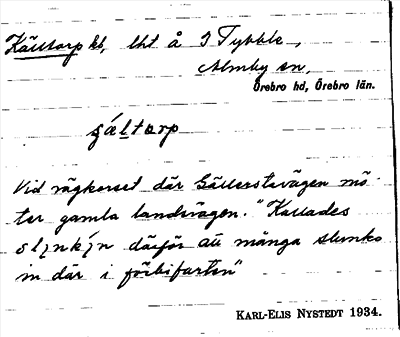 Källtorp kb, lht å J Tybble,
Almby sn,
Örebro hd, Örebro län.
ɕǽltorp
Vid vägkorset där Gällerstavägen mö-
ter gamla landsvägen. "Kallades
slinkin därför att många slunko
in där i förbifarten"
KARL-ELIS NYSTEDT 1934.